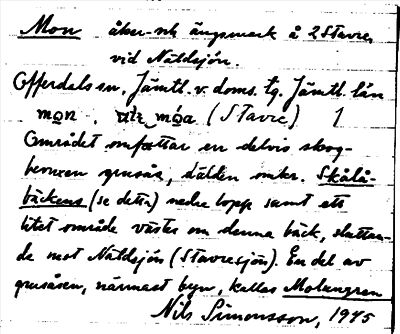 Mon åker- och ängsmark å 2 Stavre,
vid Näldsjön.
Offerdals sn, Jämtl. v. doms. tg. Jämtl. län
mo̲n, mo̲a (Stavre) 1
Området omfattar en delvis skog-
bevuxen grusås, dälden omkr. Skålå-
bäckens (se detta) nedre lopp samt ett
litet område väster om denna bäck, sluttan-
de mot Näldsjön (Stavresjön). En del av
grusåsen, närmast byn, kallas Molungren
Nils Simonsson, 1975